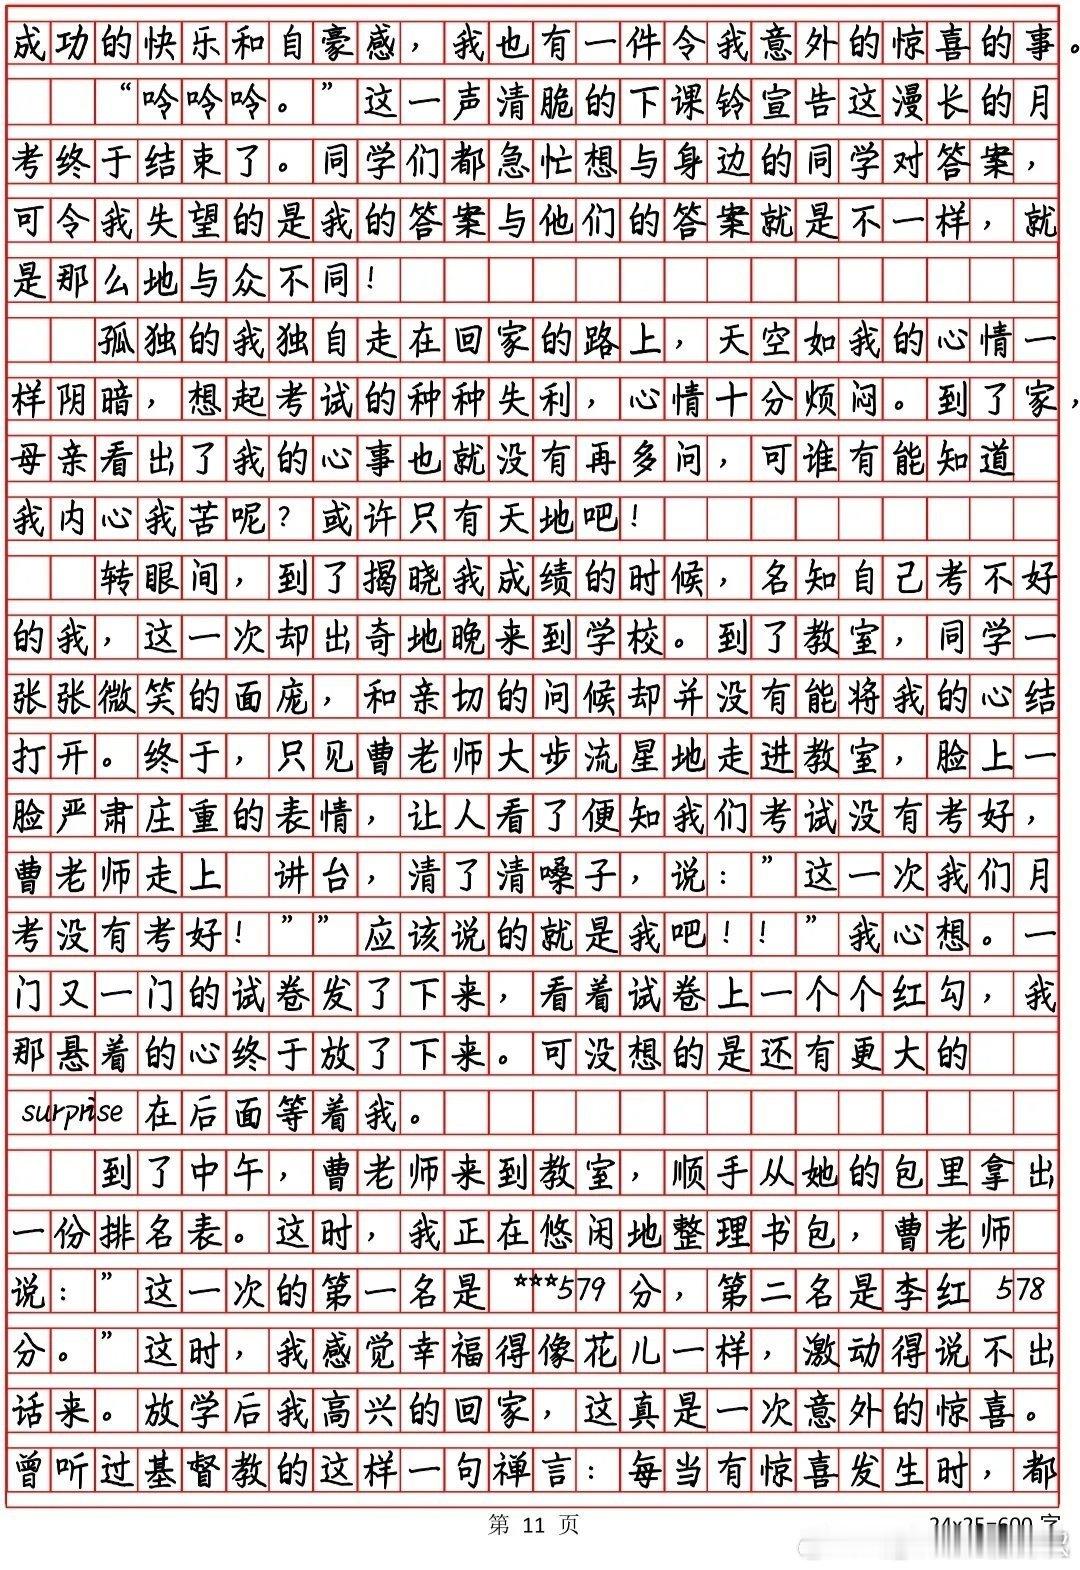 成功的快乐和自豪感，我也有一件令我意外的惊喜的事。
“呤呤呤。”这一声清脆的下课铃宣告这漫长的月
考终于结束了。同学们都急忙想与身边的同学对答案，
可令我失望的是我的答案与他们的答案就是不一样，就
是那么地与众不同！
孤独的我独自走在回家的路上，天空如我的心情一
样阴暗，想起考试的种种失利，心情十分烦闷。到了家，
母亲看出了我的心事也就没有再多问，可谁有能知道
我内心我苦呢？或许只有天地吧！
转眼间，到了揭晓我成绩的时候，名知自己考不好
的我，这一次却出奇地晚来到学校。到了教室，同学一
张张微笑的面庞，和亲切的问候却并没有能将我的心结
打开。终于，只见曹老师大步流星地走进教室，脸上一
脸严肃庄重的表情，让人看了便知我们考试没有考好，
曹老师走上 讲台，清了清嗓子，说：”这一次我们月
考没有考好！””应该说的就是我吧！！”我心想。一
门又一门的试卷发了下来，看着试卷上一个个红勾，我
那悬着的心终于放了下来。可没想的是还有更大的
surprise 在后面等着我。
到了中午，曹老师来到教室，顺手从她的包里拿出
一份排名表。这时，我正在悠闲地整理书包，曹老师
说：”这一次的第一名是 ***579 分，第二名是李红 578
分。”这时，我感觉幸福得像花儿一样，激动得说不出
话来。放学后我高兴的回家，这真是一次意外的惊喜。
曾听过基督教的这样一句禅言：每当有惊喜发生时，都
第 11 页
24x25=600 字